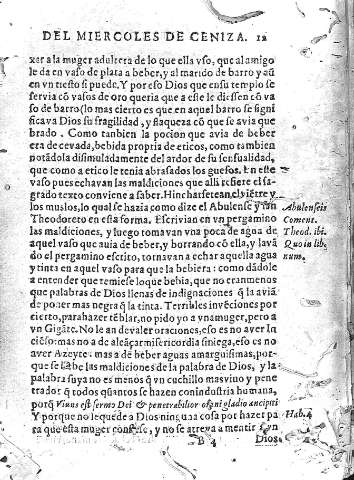 DEL MIERCOLES DE CENIZA. 12
xer a la muger adultera de lo que ella vso, que al amigo
le da en vaso de plata a beber, y al marido de barro y aũ
en vn tiesto si puede, Y por eso Dios que en su templo se
servia cõ vasos de oro queria que a este le diessen cõ va
so de barro (lo mas cierto es que en aquel barro se signi
ficava Dios su fragilidad, y flaqueza cõ que se avia que
brado. Como tanbien la pocion que avia de beber
era de cevada, bebida propria de eticos, como tambien
notãdola disimuladamente del ardor de su sensualidad,
que como a etico le tenia abrasados los guesos. En este
vaso pues echavan las maldiciones que alli refiere el sa-
grado texto conviene a saber. Hincharsetean, el viẽtre y
los muslos, lo qual se hazia como dize el Abulense y san
Theodoreto en esta forma. Escrivian en vn pergamino
las maldiciones, y luego tomavan vna poca de agua de
aquel vaso que auia de beber, y borrando cõ ella, y lavã
do el pergamino escrito, tornavan a echar aquella agua
y tinta en aquel vaso para que la bebiera: como dãdole
a entender que temiese loque bebia, que no eran menos
que palabras de Dios llenas de indignaciones q̃ la aviã
de poner mas negra q̃ la tinta. Terribles invẽciones por
cierto, para hazer tẽblar, no pido yo a vna muger, pero a
vn Gigãte. No le an de valer oraciones, eso es no aver in
ciẽso: mas no a de alcãçar misericordia siniega, eso es no
aver Azeyte: mas a de beber aguas amarguisimas, por-
que se le be las maldiciones de la palabra de Dios, y la
palabra suya no es menos q̃ vn cuchillo masvivo y pene
trador q̃ todos quantos se hazen con industria humana,
porq̃ Viuus est sermo Dei & penetrabilior omni gladio ancipiti
Y porque no le quede a Dios ninguna cosa por hazer pa
ra que esta muger confiese, y no se atreva a mentir y un
B 4 Dios
Abulensis
Coment.
Theod. ibi.
Quo in lib.
num.
Hab. 4